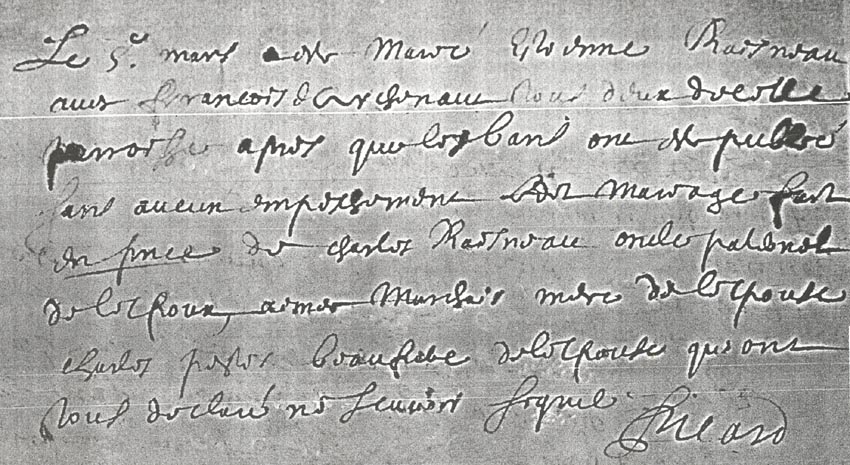 Le 5e mars a este Marié Estienne Raisneau
avec francoise Archenault tous deux de ceste
parroisse apres que les bans ont este publié
sans aucun empeschement ledit Mariage fait
en pnce de charles Raisneau oncle paternel
de lespoux, aimée Marchais mere de lespouse
charles beaufrere de lespouse qui ont
tous declaré ne scavoir signer